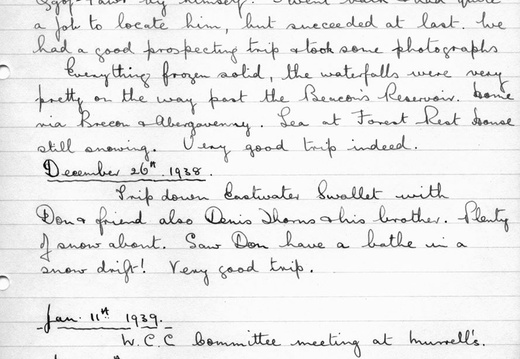 by himself. I went back & had quite
a job to locate him, but succeeded at last. We
had a good prospecting trip & took some photographs
Everything frozen solid, the waterfalls were very
pretty on the way past the Beacons Reservoir. Home
via Brecon & Abergavenny. Tea at Forest Rest House
still snowing. Very good trip indeed.
December 26th 1938.
Trip down Eastwater Swallet with
Don & friend also Denis Thorns & his brother. Plenty
of snow about. Saw Don have a bathe in a
snow drift! Very good trip.
Jan. 11th 1939.
W.C.C Committee meeting at Murrell's.